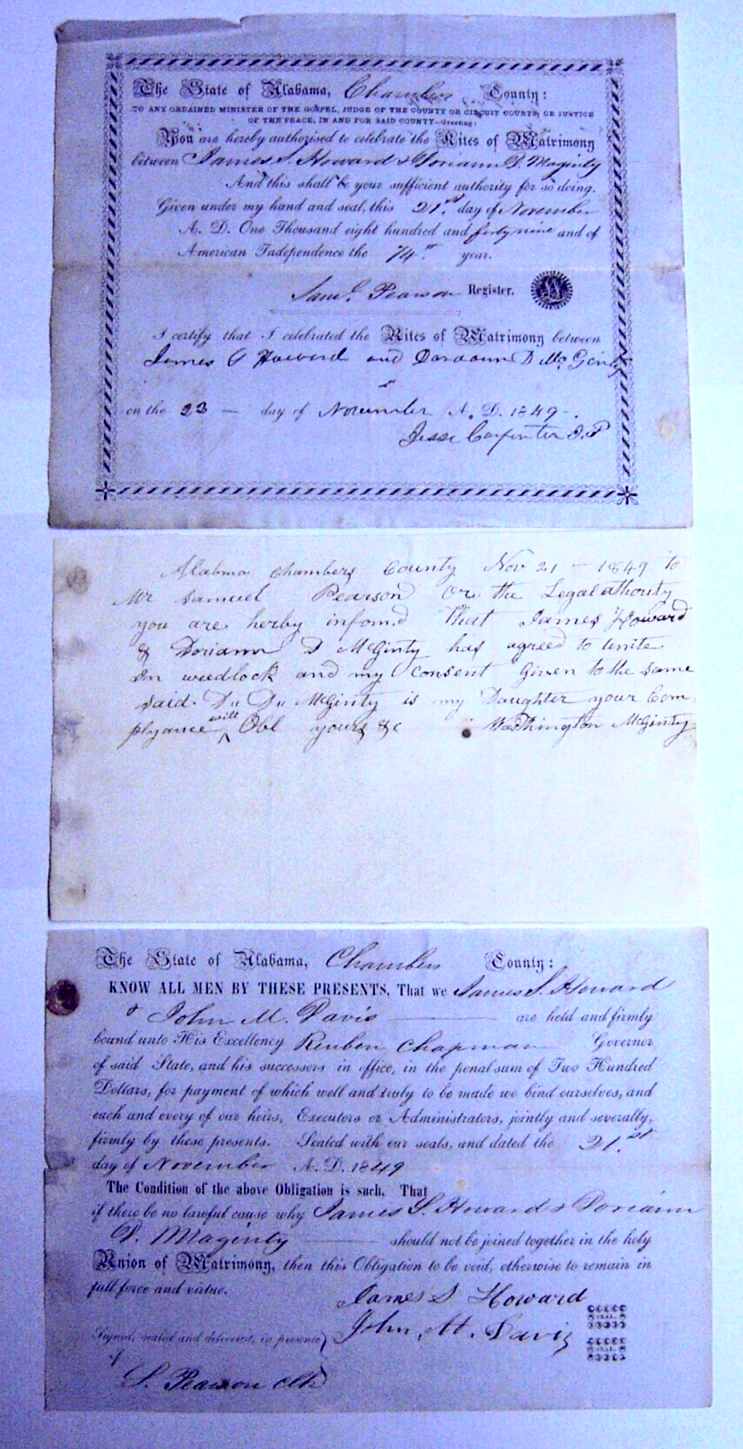 The State of Alabama, Chambers County:
TO ANY ORDAINED MINISTER OF THE GOSPEL, JUDGE OF THE COUNTY OR CIRCUIT COURTS, OR JUSTICE
OF THE PEACE, IN AND FOR SAID COUNTY—Greeting:
You are hereby authorised to celebrate the Rites of Matrimony
between James S. Howard & Doriann D. Maginty
And this shall be your sufficient authority for so doing.
Given under my hand and seal, this 21st day of November
A. D. One Thousand eight hundred and forty nine and of
American Independence the 74th year.
Saml. Pearson Register.
I certify that I celebrated the Rites of Matrimony between
James S Howard and D Mc Ginty
on the 23 — day of November A. D. 1849.
Jesse Carpenter J.P
Alabma Chambers County Nov 21 – 1849 to
Mr Samuel Pearson Or the Legal athority
you are herby infomd that James Howard
& Doriann D McGinty has agreed to unite
in wedlock and my consent Given to the same
said. McGinty is my Daughter your Com
plyance will Obl yours &c Washington McGinty
The State of Alabama, Chambers County:
KNOW ALL MEN BY THESE PRESENTS, That we James S. Howard
& John M. Davis are held and firmly
bound unto His Excellency Reuben Chapman Governor
of said State, and his successors in office, in the penal sum of Two Hundred
Dollars, for payment of which well and truly to be made we bind ourselves, and
each and every of our heirs, Executors or Administrators, jointly and severally,
firmly by these presents. Sealed with our seals, and dated the 21.st
day of November A. D. 1849
The Condition of the above Obligation is such, That
if there be no lawful cause why James S. Howard & Doriann
D. Maginty should not be joined together in the holy
Union of Matrimony, then this Obligation to be void, otherwise to remain in
full force and virtue.
James S Howard
SEAL
Signed, sealed and delivered, in presence John M. Davis
SEAL
of
S. Pearson clk